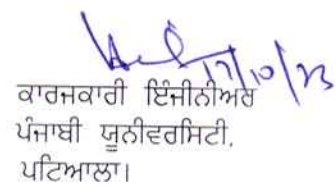 17/10/23
ਕਾਰਜਕਾਰੀ ਇੰਜੀਨੀਅਰ
ਪੰਜਾਬੀ ਯੂਨੀਵਰਸਿਟੀ,
ਪਟਿਆਲਾ।